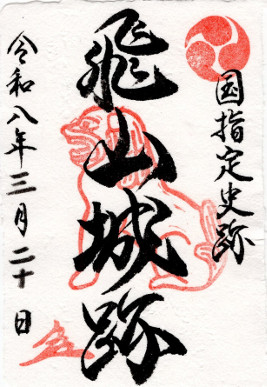 国指定史跡
飛山城跡
令和八年三月二十日